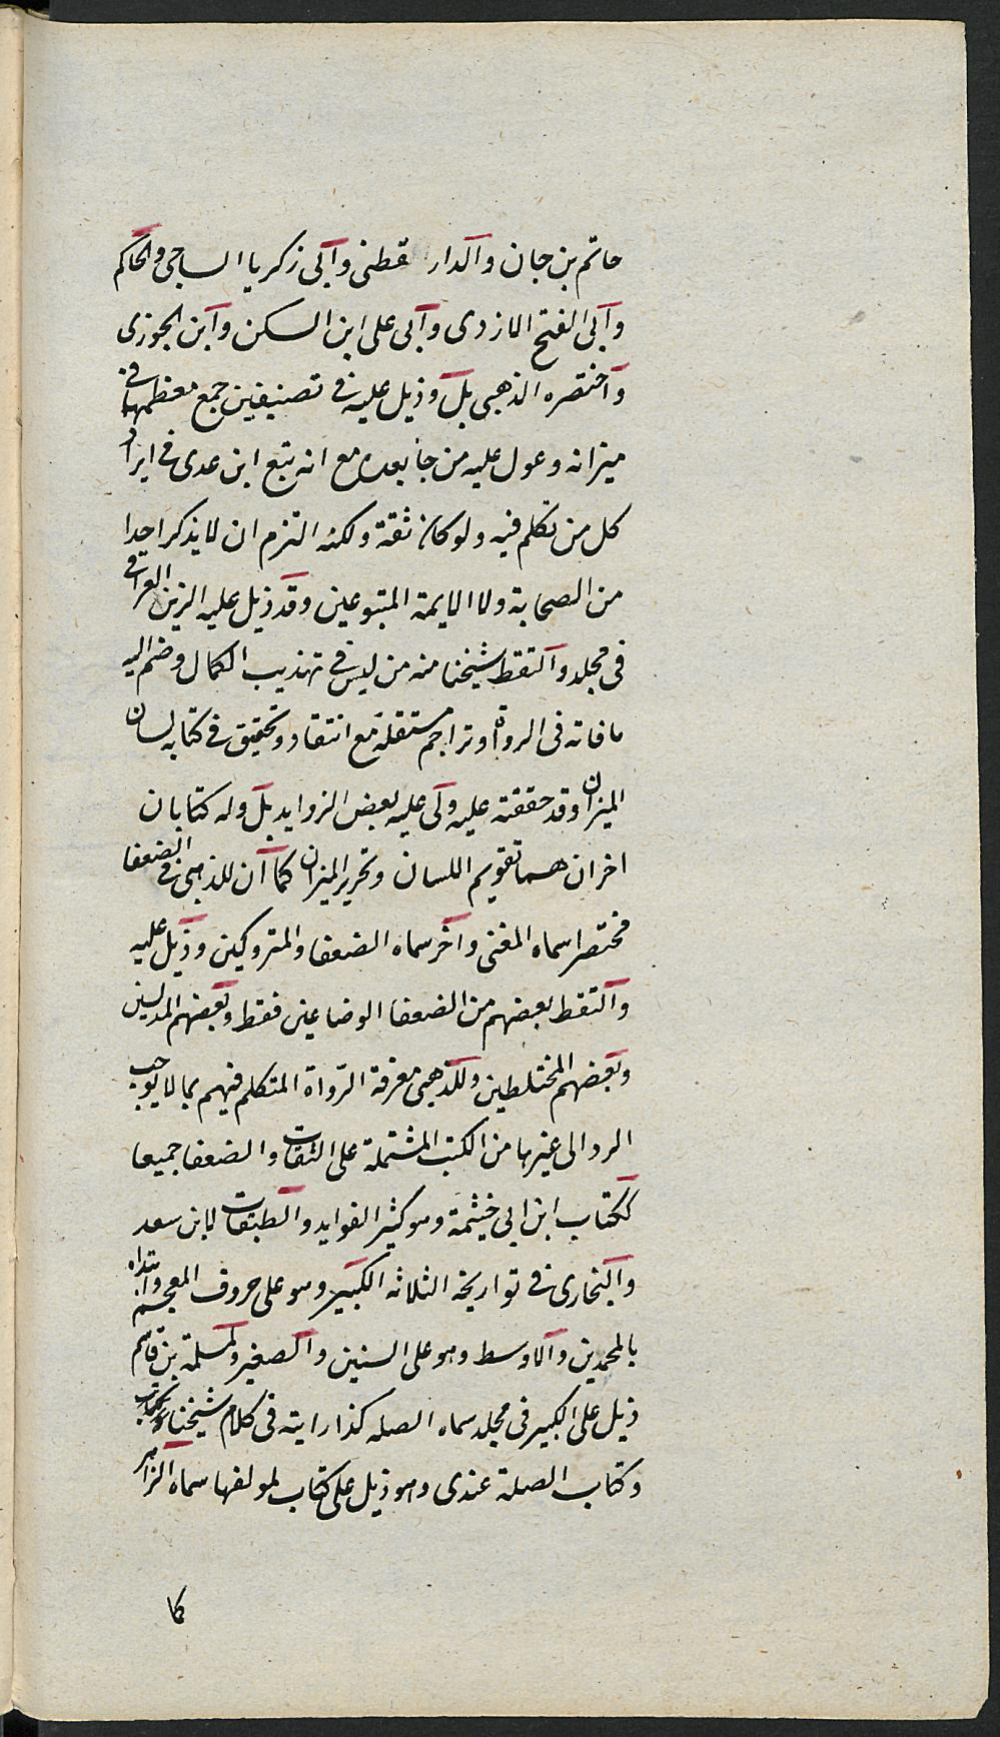 حاتم بن حبان والدار قطنى وابى زكريا الساجى والحاكم
وابى الفتح الازدى وابى على ابن السكن وابن الجوزى
واختصره الذهبى بل وذيل عليه فى تصنيفين جمع معظمهما فى
ميزانه وعول عليه من جا بعده مع انه تبع ابن عدى فى ايراد
كل من تكلم فيه ولو كان ثقة ولكنه التزم ان لا يذكر احدا
من الصحابة ولا الايمة المتبوعين وقد ذيل عليه الزين العراقى
فى مجلد والتقط شيخنا منه من ليس فى تهذيب الكمال وضم اليه
ما فاته فى الرواة وتراجم مستقلة مع انتقاد وتحقيق فى كتابه لسان
الميزان وقد حققته عليه ولى عليه بعض الزوايد بل وله كتابان
اخران هما تقويم اللسان وتحرير الميزان كما ان للذهبى فى الضعفا
مختصرا سماه المغنى واخر سماه الضعفا والمتروكين وذيل عليه
والتقط بعضهم من الضعفا الوضاعين فقط وبعضهم المدلسين
وبعضهم المختلطين وللذهبى معرفة الرواة المتكلم فيهم بما لا يوجب
الرد الى غيرها من الكتب المشتملة على الثقات والضعفا جميعا
ككتاب ابن ابى خيثمة وهو كثير الفوايد والطبقات لابن سعد
والبخارى فى تواريخه الثلاثه الكبير وهو على حروف المعجم وابتداه
بالمحمدين والاوسط وهو على السنين والصغير ولمسلمة بن قاسم
ذيل على الكبير فى مجلد سماه الصله كذا رايته فى كلام شيخنا
وكتاب الصلة عندى وهو ذيل على كتاب لمولفها سماه الزاهر
كما